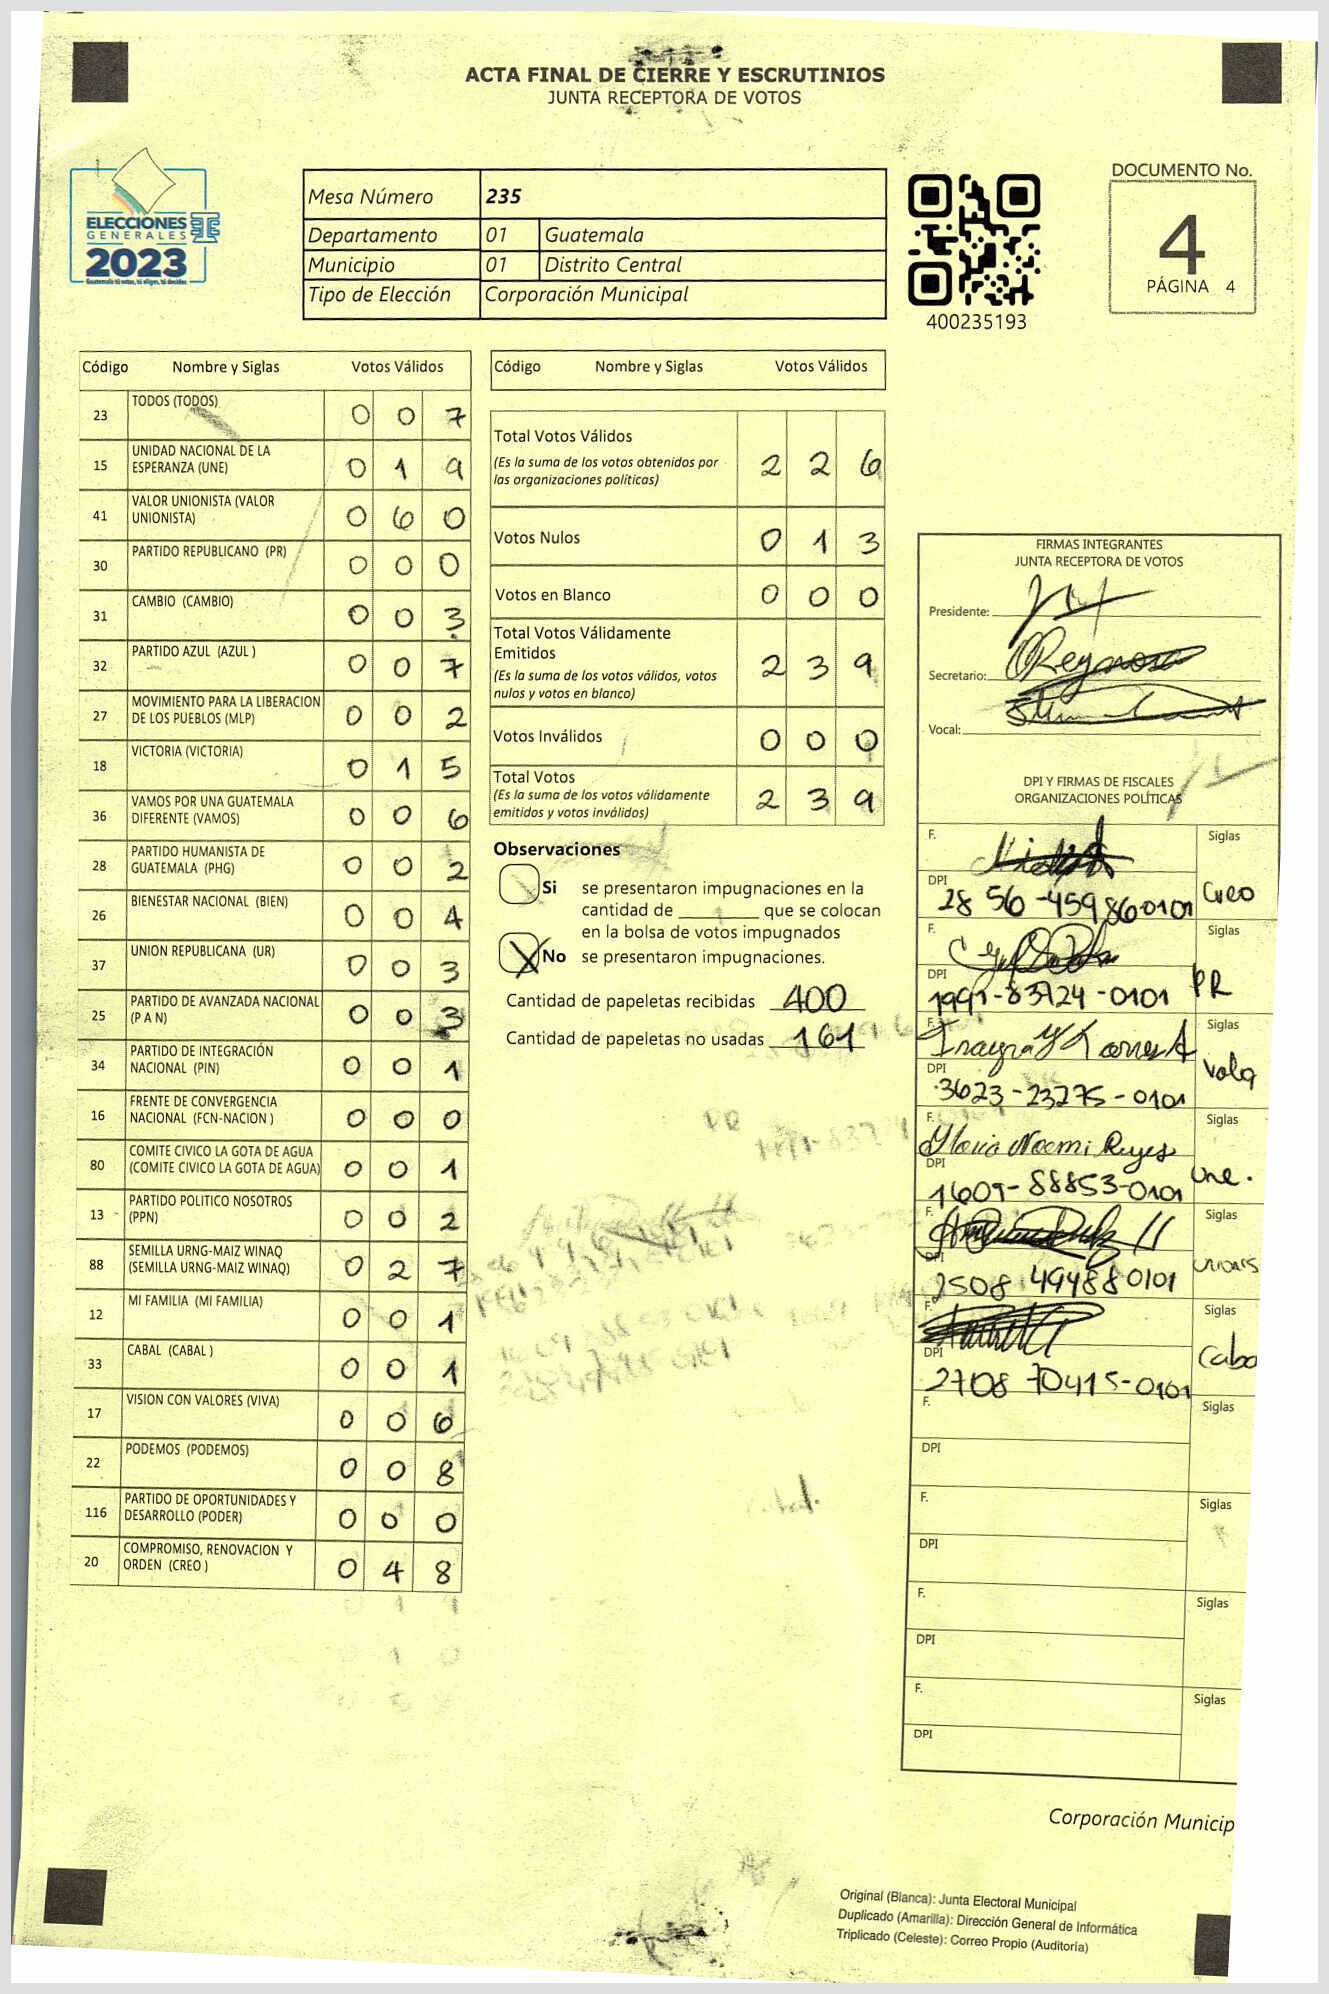 ACTA FINAL DE CIERRE Y ESCRUTINIOS
JUNTA RECEPTORA DE VOTOS
ELECCIONES
GENERALES
2023
Guatemala tú votas, tú eliges, tú decides
Mesa Número 235
Departamento 01 Guatemala
Municipio 01 Distrito Central
Tipo de Elección Corporación Municipal
400235193
DOCUMENTO No.
4
PÁGINA 4
Código Nombre y Siglas Votos Válidos
23 TODOS (TODOS) 0 0 7
15 UNIDAD NACIONAL DE LA
ESPERANZA (UNE) 0 1 9
41 VALOR UNIONISTA (VALOR
UNIONISTA) 0 6 0
30 PARTIDO REPUBLICANO (PR) 0 0 0
31 CAMBIO (CAMBIO) 0 0 3
32 PARTIDO AZUL (AZUL ) 0 0 7
27 MOVIMIENTO PARA LA LIBERACION
DE LOS PUEBLOS (MLP) 0 0 2
18 VICTORIA (VICTORIA) 0 1 5
36 VAMOS POR UNA GUATEMALA
DIFERENTE (VAMOS) 0 0 6
28 PARTIDO HUMANISTA DE
GUATEMALA (PHG) 0 0 2
26 BIENESTAR NACIONAL (BIEN) 0 0 4
37 UNION REPUBLICANA (UR) 0 0 3
25 PARTIDO DE AVANZADA NACIONAL
(P A N) 0 0 3
34 PARTIDO DE INTEGRACIÓN
NACIONAL (PIN) 0 0 1
16 FRENTE DE CONVERGENCIA
NACIONAL (FCN-NACION ) 0 0 0
80 COMITE CIVICO LA GOTA DE AGUA
(COMITE CIVICO LA GOTA DE AGUA) 0 0 1
13 PARTIDO POLITICO NOSOTROS
(PPN) 0 0 2
88 SEMILLA URNG-MAIZ WINAQ
(SEMILLA URNG-MAIZ WINAQ) 0 2 7
12 MI FAMILIA (MI FAMILIA) 0 0 1
33 CABAL (CABAL ) 0 0 1
17 VISION CON VALORES (VIVA) 0 0 6
22 PODEMOS (PODEMOS) 0 0 8
116 PARTIDO DE OPORTUNIDADES Y
DESARROLLO (PODER) 0 0 0
20 COMPROMISO, RENOVACION Y
ORDEN (CREO ) 0 4 8
Código Nombre y Siglas Votos Válidos
Total Votos Válidos
(Es la suma de los votos obtenidos por
las organizaciones políticas) 2 2 6
Votos Nulos 0 1 3
Votos en Blanco 0 0 0
Total Votos Válidamente
Emitidos
(Es la suma de los votos válidos, votos
nulos y votos en blanco) 2 3 9
Votos Inválidos 0 0 0
Total Votos
(Es la suma de los votos válidamente
emitidos y votos inválidos) 2 3 9
Observaciones
Si se presentaron impugnaciones en la
cantidad de ________ que se colocan
en la bolsa de votos impugnados
X No se presentaron impugnaciones.
Cantidad de papeletas recibidas 400
Cantidad de papeletas no usadas 161
FIRMAS INTEGRANTES
JUNTA RECEPTORA DE VOTOS
Presidente:
Secretario:
Vocal:
DPI Y FIRMAS DE FISCALES
ORGANIZACIONES POLÍTICAS
F. Siglas
DPI 28 56 -45986-0101 Creo
F. Siglas
DPI 1991-83724-0101 PR
F. Siglas
DPI 3623-23275-0101
F. Noemi Reyes Siglas
DPI 1609-88853-0101 Une.
F. Siglas
DPI 2508 49488 0101
F. Siglas
DPI 2708 70415-0101 Caba
F. Siglas
DPI
F. Siglas
DPI
F. Siglas
DPI
F. Siglas
DPI
Corporación Municip
Original (Blanca): Junta Electoral Municipal
Duplicado (Amarilla): Dirección General de Informática
Triplicado (Celeste): Correo Propio (Auditoría)